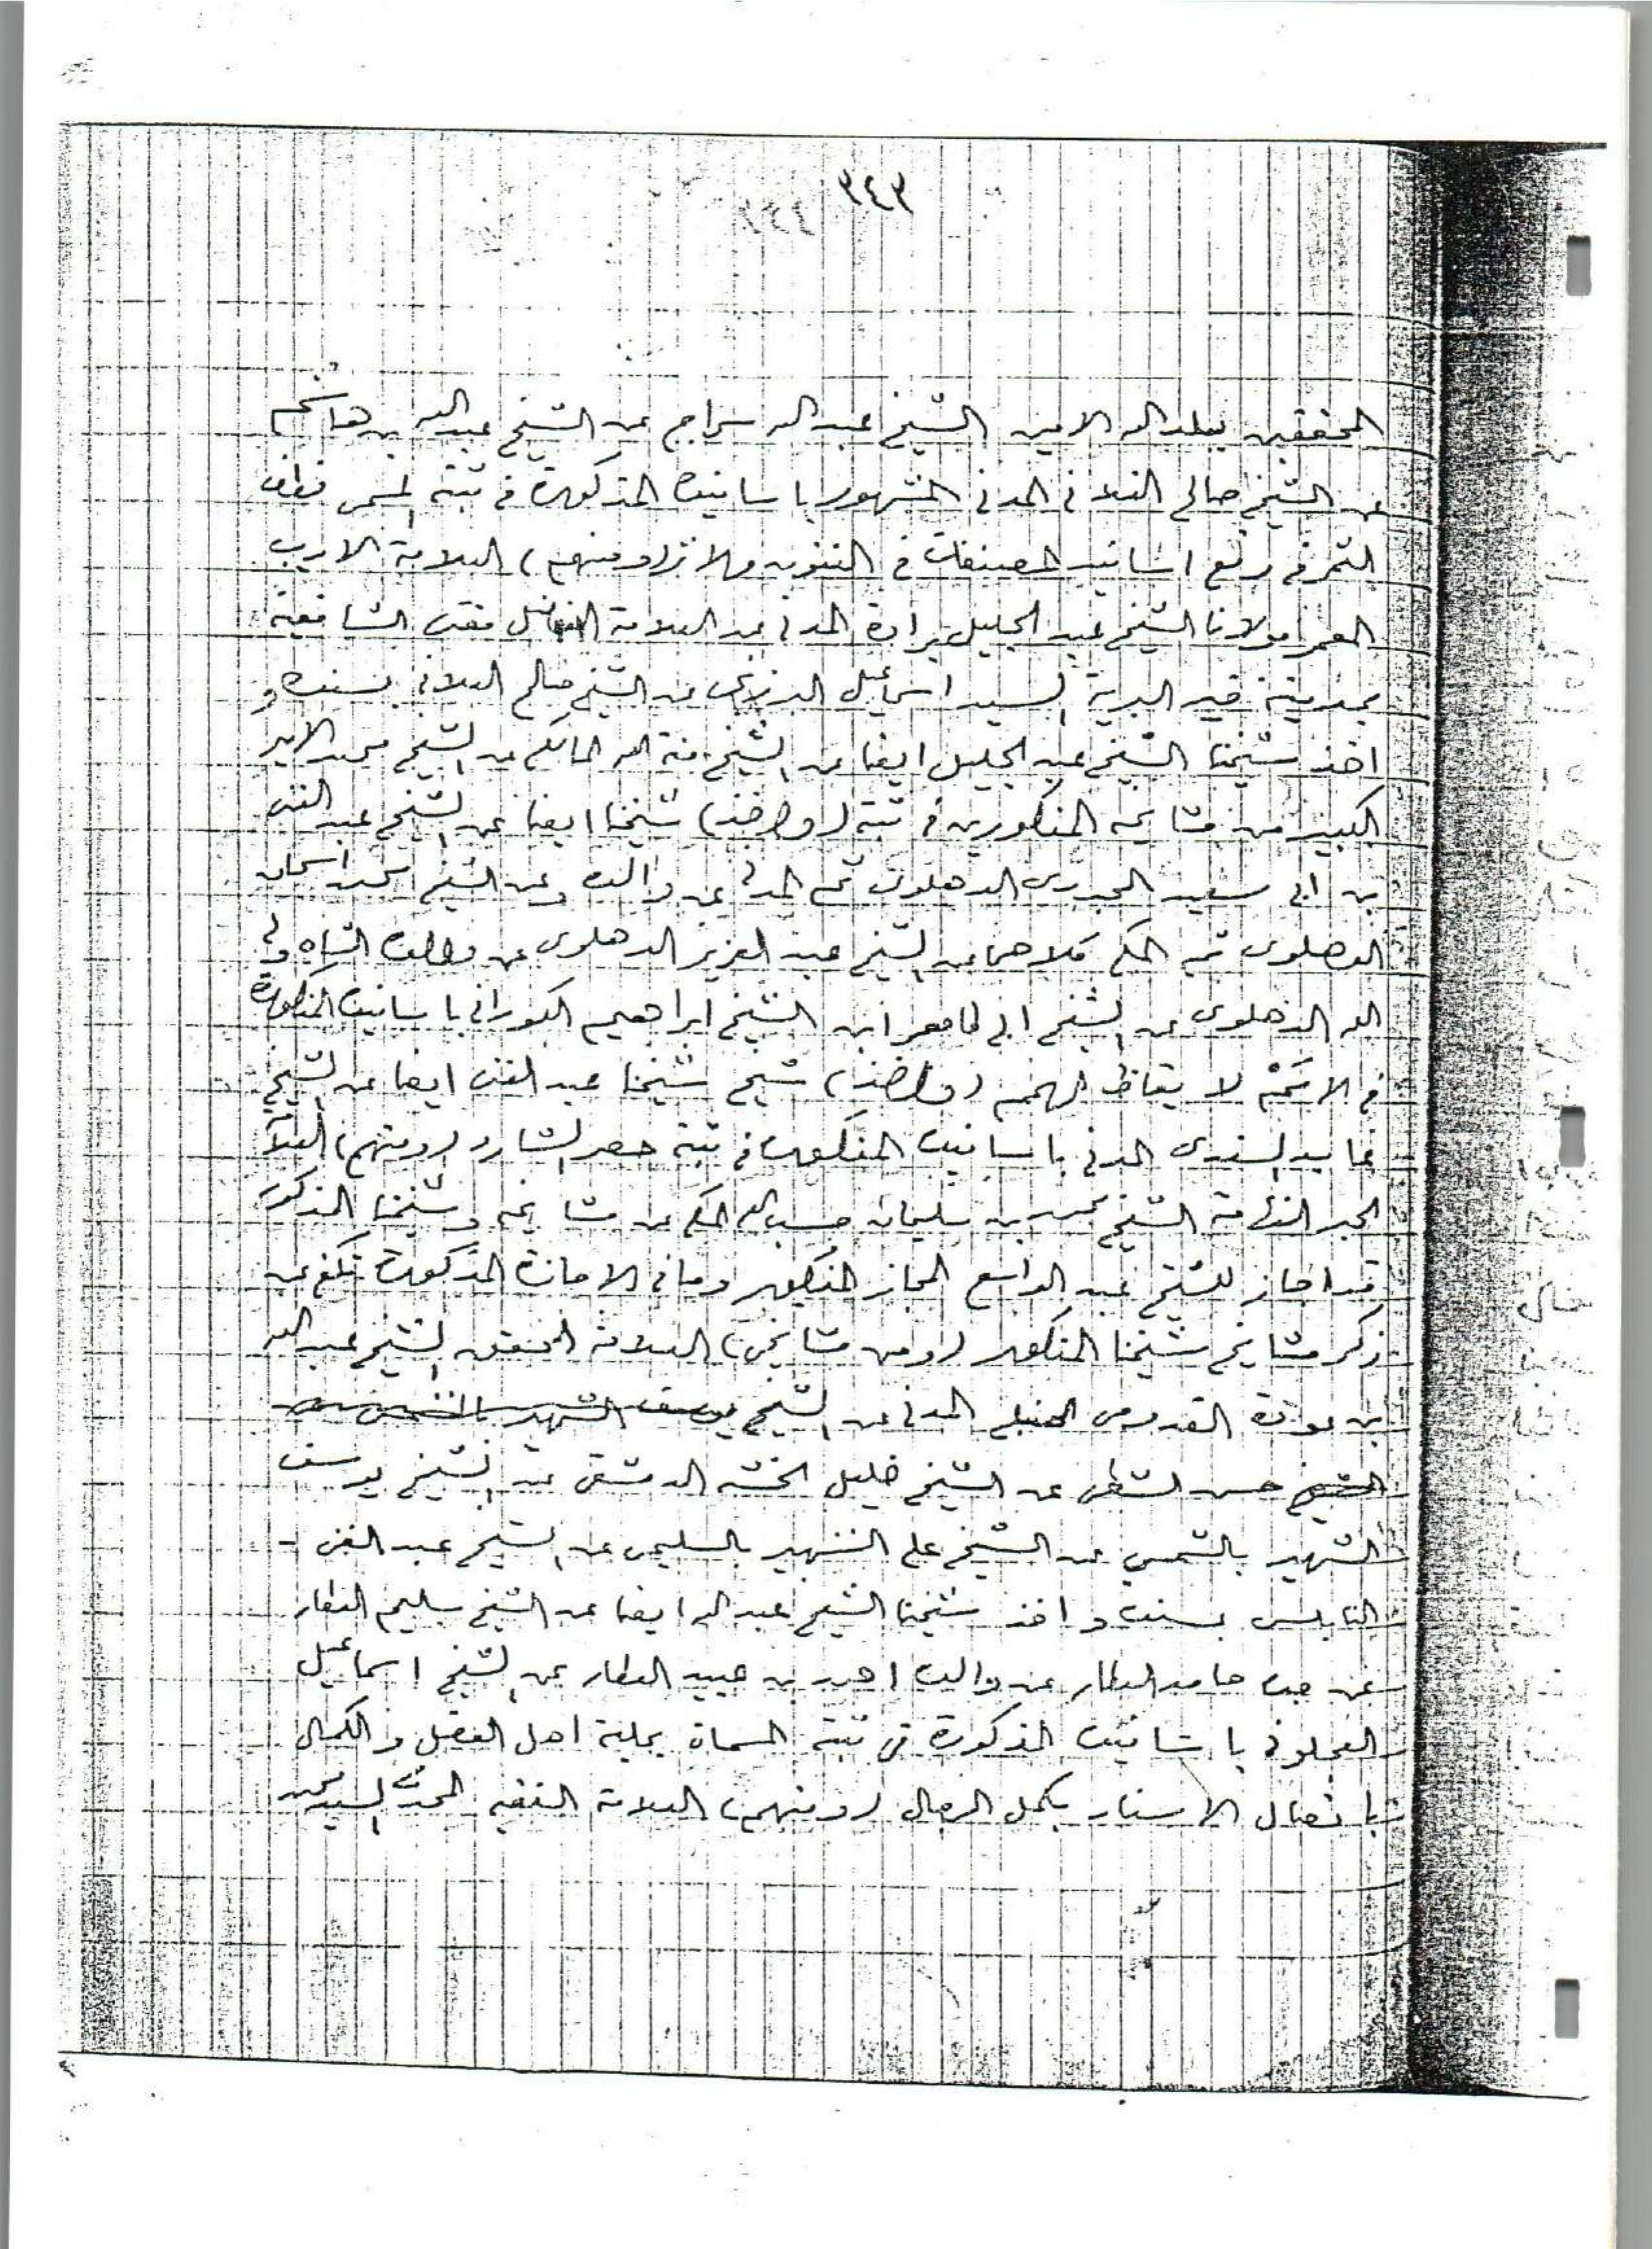 ٣٤٣
المحققين ببلد الله الامين الشيخ عبد الله سراج عن الشيخ عبد الله بن هاشم
عن الشيخ صالح الفلاني المدني المشهور باسانيده المذكورة في ثبته المسمى قطف
الثمر في رفع اسانيد المصنفات في الفنون والاثر (ومنهم) العلامة الاديب
المعمر مولانا الشيخ عبد الجليل برادة المدني عن العلامة الفاضل مفتي الشافعية
بمدينة خير البرية السيد اسماعيل البرزنجي عن الشيخ صالح الفلاني بسنده و
اخذ شيخنا الشيخ عبد الجليل ايضا عن الشيخ منة الله المالكي عن الشيخ محمد الامير
الكبير عن مشايخه المذكورين في ثبته (واخذ) شيخنا ايضا عن الشيخ عبد الغني
بن ابي سعيد المجددي الدهلوي ثم المدني عن والده وعن الشيخ محمد اسحاق
الدهلوي ثم المكي كلاهما عن الشيخ عبد العزيز الدهلوي عن والده الشاه ولي
الله الدهلوي عن الشيخ ابي طاهر ابن الشيخ ابراهيم الكوراني باسانيده المذكورة
في الامم لايقاظ الهمم (واخذ) شيخ شيخنا عبد الغني ايضا عن الشيخ
عابد السندي المدني باسانيده المذكورة في ثبته حصر الشارد (ومنهم) العلامة
الحبر الفهامة الشيخ محمد بن سليمان حسب الله المكي عن مشايخه وشيخنا المذكور
قد اجاز للشيخ عبد الواسع المجاز المذكور وما في الاجازة المذكورة تكفي عن
ذكر مشايخ شيخنا المذكور (ومن مشايخي) العلامة المحقق الشيخ عبد الله
ابن عودة القدومي الحنبلي المدني عن الشيخ يوسف الشهير بالشمس عن
الشيخ حسن الشطي عن الشيخ خليل الخشه الدمشقي عن الشيخ يوسف
الشهير بالشمس عن الشيخ علي الشهير بالسليمي عن الشيخ عبد الغني
النابلسي بسنده واخذ شيخنا الشيخ عبد الله ايضا عن الشيخ سليم العطار
عن جده حامد العطار عن والده احمد بن عبيد العطار عن الشيخ اسماعيل
العجلوني باسانيده المذكورة في ثبته المسماة بحلية اهل الفضل والكمال
باتصال الاسناد بكمل الرجال (ومنهم) العلامة الفقيه المحدث السيد محمد